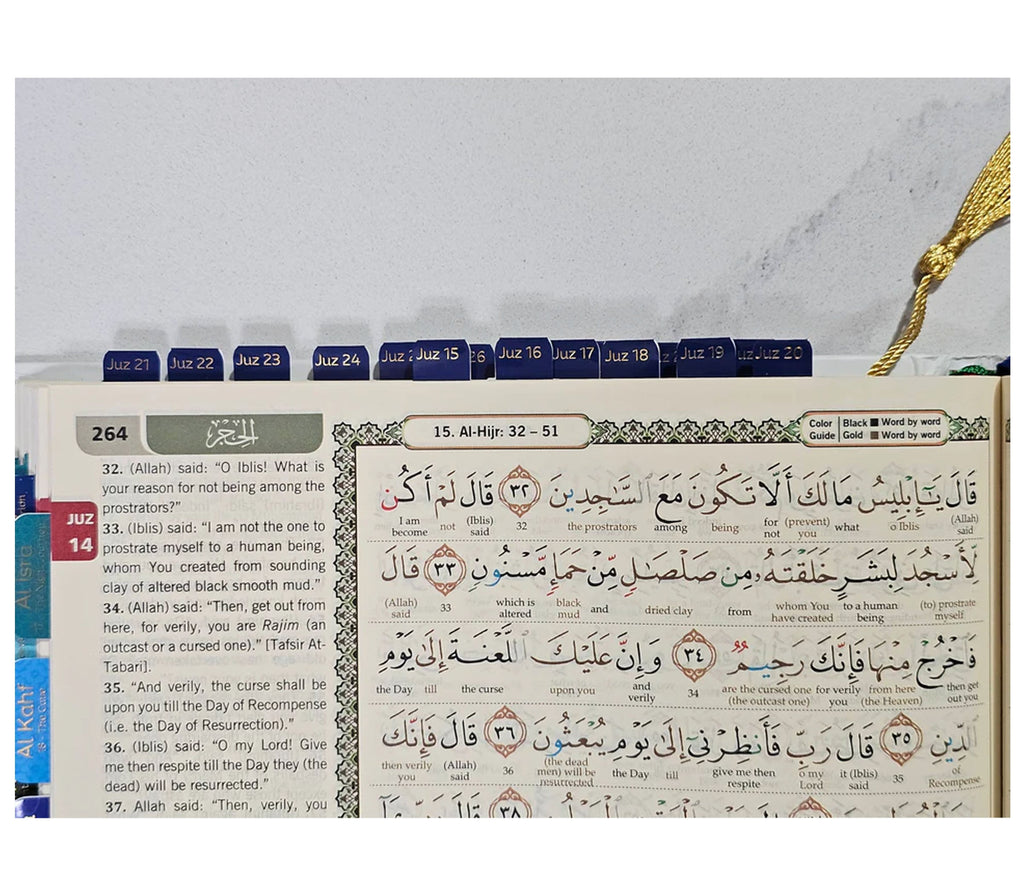 Juz 21
Juz 22
Juz 23
Juz 24
Juz
Juz 15
26
Juz 16
Juz 17
Juz 18
Juz 19
Juz 20
264
الحجر
15. Al-Hijr: 32 – 51
Color Guide
Black Word by word
Gold Word by word
JUZ
14
Al Isra
Al Kahf
32. (Allah) said: "O Iblis! What is
your reason for not being among the
prostrators?"
33. (Iblis) said: "I am not the one to
prostrate myself to a human being,
whom You created from sounding
clay of altered black smooth mud."
34. (Allah) said: "Then, get out from
here, for verily, you are Rajim (an
outcast or a cursed one)." [Tafsir At-
Tabari].
35. "And verily, the curse shall be
upon you till the Day of Recompense
(i.e. the Day of Resurrection)."
36. (Iblis) said: "O my Lord! Give
me then respite till the Day they (the
dead) will be resurrected."
37. Allah said: "Then, verily, you
قَالَ يَـٰٓإِبْلِيسُ مَا لَكَ أَلَّا تَكُونَ مَعَ ٱلسَّـٰجِدِينَ ٣٢ قَالَ لَمْ أَكُن
(Allah) said o Iblis what (prevent) you for not being among the prostrators 32 (Iblis) said not I am become
لِّأَسْجُدَ لِبَشَرٍ خَلَقْتَهُۥ مِن صَلْصَـٰلٍ مِّنْ حَمَإٍ مَّسْنُونٍ ٣٣ قَالَ
(to) prostrate myself to a human being whom You have created from dried clay and black mud which is altered 33 (Allah) said
فَٱخْرُجْ مِنْهَا فَإِنَّكَ رَجِيمٌ ٣٤ وَإِنَّ عَلَيْكَ ٱللَّعْنَةَ إِلَىٰ يَوْمِ
then get out you from here (the Heaven) for verily you are the cursed one (the outcast one) 34 and verily upon you the curse till the Day
ٱلدِّينِ ٣٥ قَالَ رَبِّ فَأَنظِرْنِىٓ إِلَىٰ يَوْمِ يُبْعَثُونَ ٣٦ قَالَ فَإِنَّكَ
of Recompense 35 it (Iblis) said o my Lord give me then respite till the Day (the dead men) will be resurrected 36 (Allah) said then verily you
٣٨